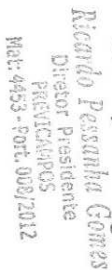 Ricardo Pessanha Gomes
Diretor Presidente
PREVICAMPOS
Mat: 4453 - Port. 008/2012